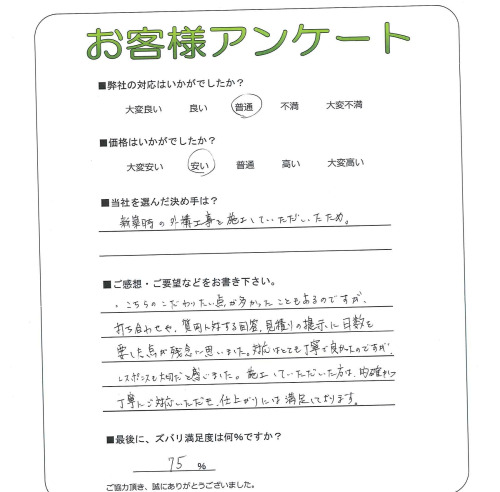 お客様アンケート
■弊社の対応はいかがでしたか？
大変良い 良い 普通 不満 大変不満
■価格はいかがでしたか？
大変安い 安い 普通 高い 大変高い
■当社を選んだ決め手は？
新築時の外構工事を施工していただいたため。
■ご感想・ご要望などをお書き下さい。
・こちらのこだわりたい点が多かったこともあるのですが、
打ち合わせや、質問に対する回答、見積りの提示に日数を
要した点が残念に思いました。対応はとても丁寧で良かったのですが、
レスポンスも大切だと感じました。施工していただいた方は、的確かつ
丁寧にご対応いただき、仕上がりには満足しております。
■最後に、ズバリ満足度は何％ですか？
75 ％
ご協力頂き、誠にありがとうございました。